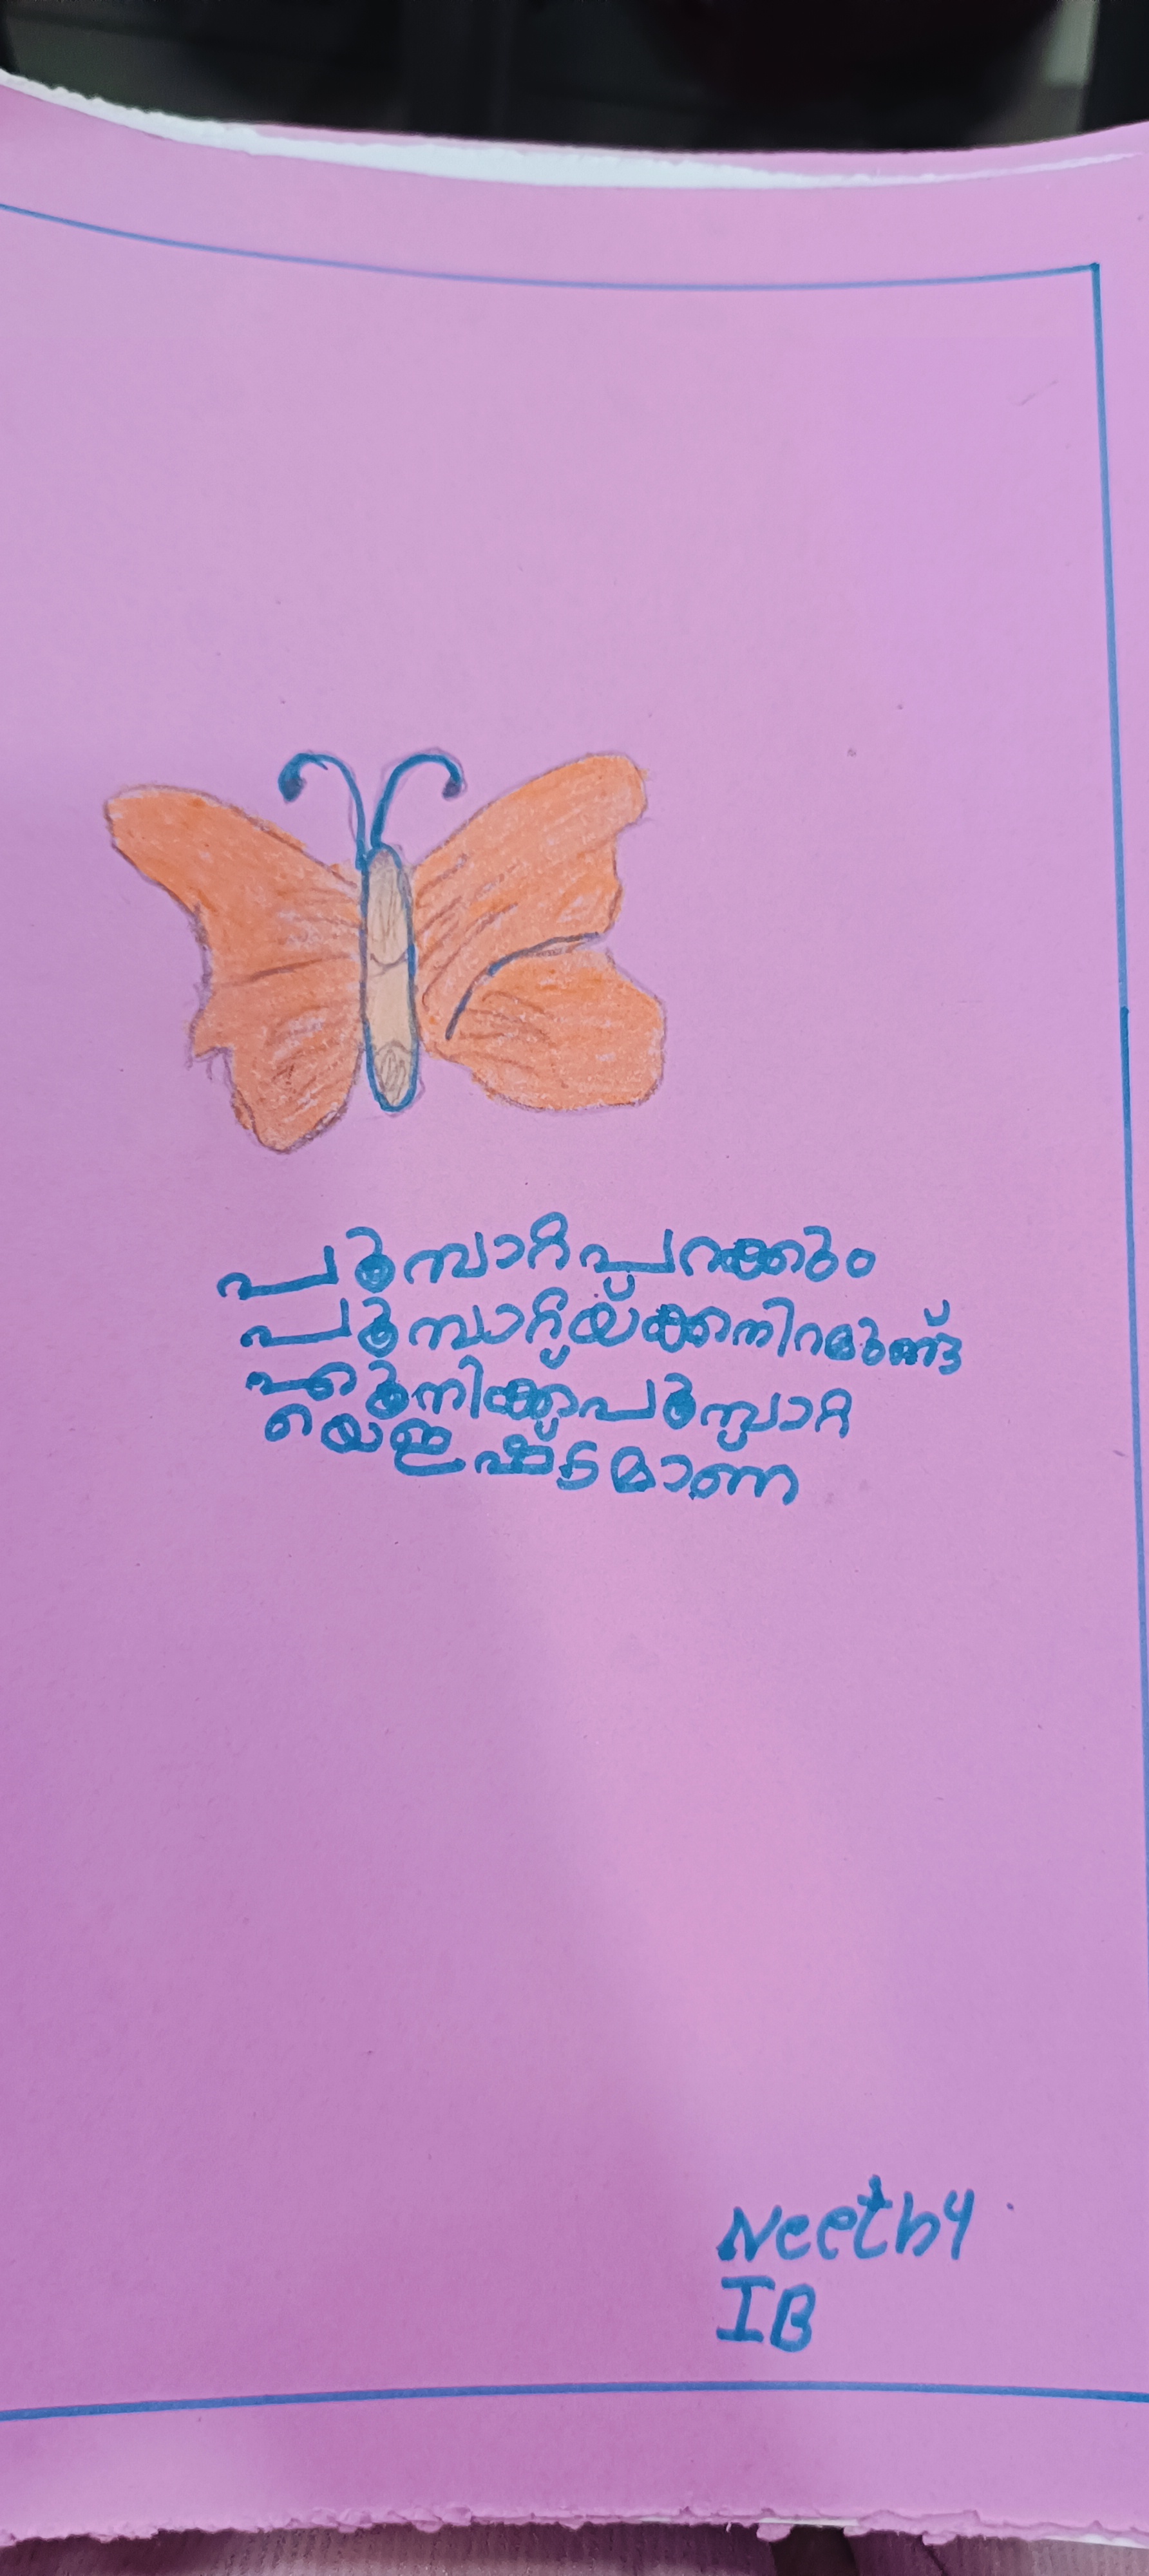 പൂമ്പാറ്റപറക്കും
പൂമ്പാറ്റയ്ക്കനിറമുണ്ട്
എനിക്ക്പൂമ്പാറ്റ
യെഇഷ്ടമാണ്
Neethy
IB